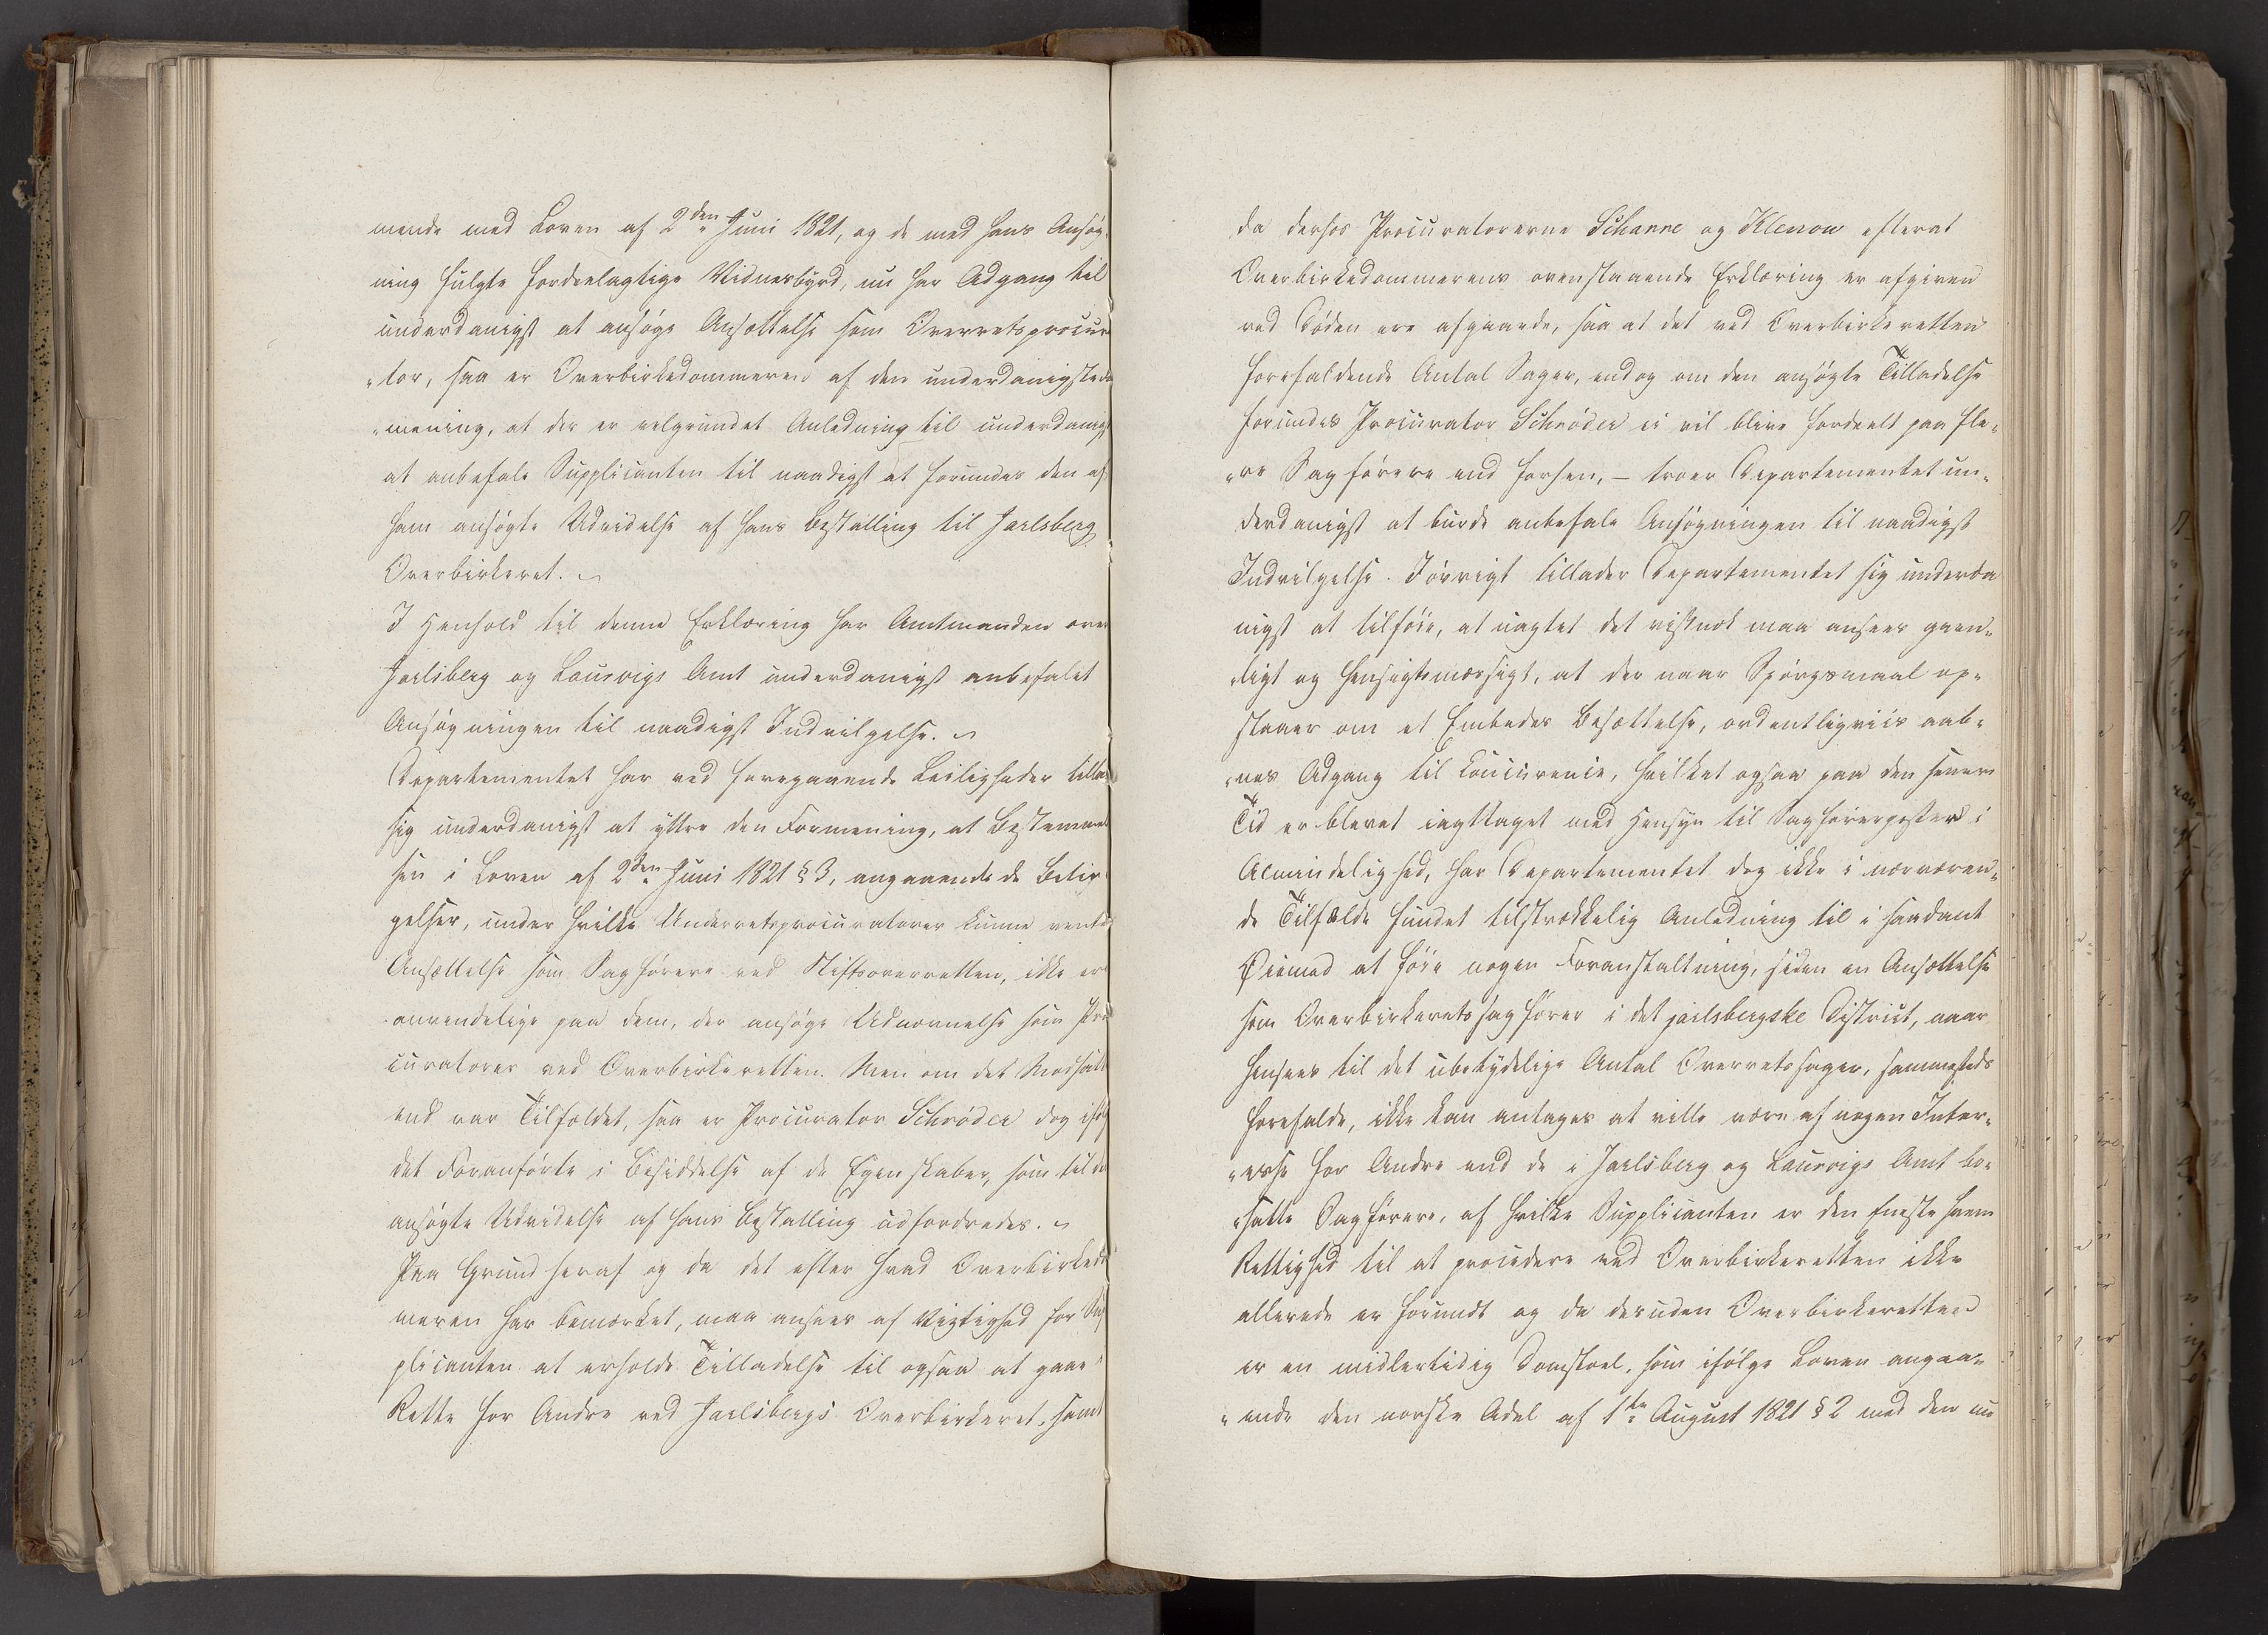 mende med Loven af 2den Juni 1821, og de med hans Ansøg-
ning fulgte fordeelagtige Vidnesbyrd, nu har Adgang til
underdanigst at ansøge Ansættelse som Overretsprocura
"tor, saa er Overbirkedommeren af den underdanigste
"mening, at der er velgrundet Anledning til underdanigst
at anbefale Supplicanten til naadigst at forundes den af
ham ansøgte Udvidelse af hans Bestalling til Jarlsberg
Overbirkeret.
I Henhold til denne Erklæring har Amtmanden over
Jarlsberg og Laurvigs Amt underdanigst anbefalet
Ansøgningen til naadigst Indvilgelse.
Departementet har ved foregaaende Leiligheder tilla
sig underdanigst at yttre den Formening, at Bestemmel
sen i Loven af 2den Juni 1821 § 3, angaaende de Betin
gelser, under hvilke Underretsprocuratorer kunne vente
Ansættelse som Sagførere ved Stiftsoverretten, ikke er
anvendelige paa dem, der ansøge Udnævnelse som Pro
curatorer ved Overbirkeretten. Men om det Modsatte
end var Tilfældet, saa er Procurator Schrøder dog ifølg
det Foranførte i Besiddelse af de Egenskaber, som til de
ansøgte Udvidelse af hans Bestalling udfordredes.
Paa Grund heraf og da det efter hvad Overbirkedom
meren har bemærket, maa ansees af Vigtighed for Sup
plicanten at erholde Tilladelse til ogsaa at gaae i
Rette for Andre ved Jarlsbergs Overbirkeret, samt
da derhos Procuratorerne Schanne og Klenow efterat
Overbirkedommerens ovenstaaende Erklæring er afgiven
ved Døden ere afgaaede, saa at det ved Overbirkeretten
forefaldende Antal Sager, endog om den ansøgte Tilladelse
forundes Procurator Schrøder ei vil blive fordeelt paa fle-
"re Sagførere end forhen, – troer Departementet un-
derdanigst at burde anbefale Ansøgningen til naadigst
Indvilgelse. Iøvrigt tillader Departementet sig underda
nigst at tilføie, at uagtet det vistnok maa ansees gavn-
"ligt og hensigtsmæssigt, at der naar Spørgsmaal op-
staaer om et Embedes Besættelse, ordentligviis aab-
"nes Adgang til Concurence, hvilket ogsaa paa den senere
Tid er blevet iagttaget med Hensyn til Sagførerposter i
Almindelighed, har Departementet dog ikke i nærværen-
de Tilfælde fundet tilstrækkelig Anledning til i saadant
Øiemed at føie nogen Foranstaltning, siden en Ansættelse
som Overbirkeretssagfører i det jarlsbergske District, naar
hensees til det ubetydelige Antal Overretssager, sammesteds
forefalde, ikke kan antages at ville være af nogen Inter-
"esse for Andre end de i Jarlsberg og Laurvigs Amt bo-
"satte Sagførere, af hvilke Supplicanten er den Eneste hvem
Rettighed til at procedere ved Overbirkeretten ikke
allerede er forundt og da desuden Overbirkeretten
er en midlertidig Domstoel, som ifølge Loven angaa-
"ende den norske Adel af 1ste August 1821 § 2 med den nu